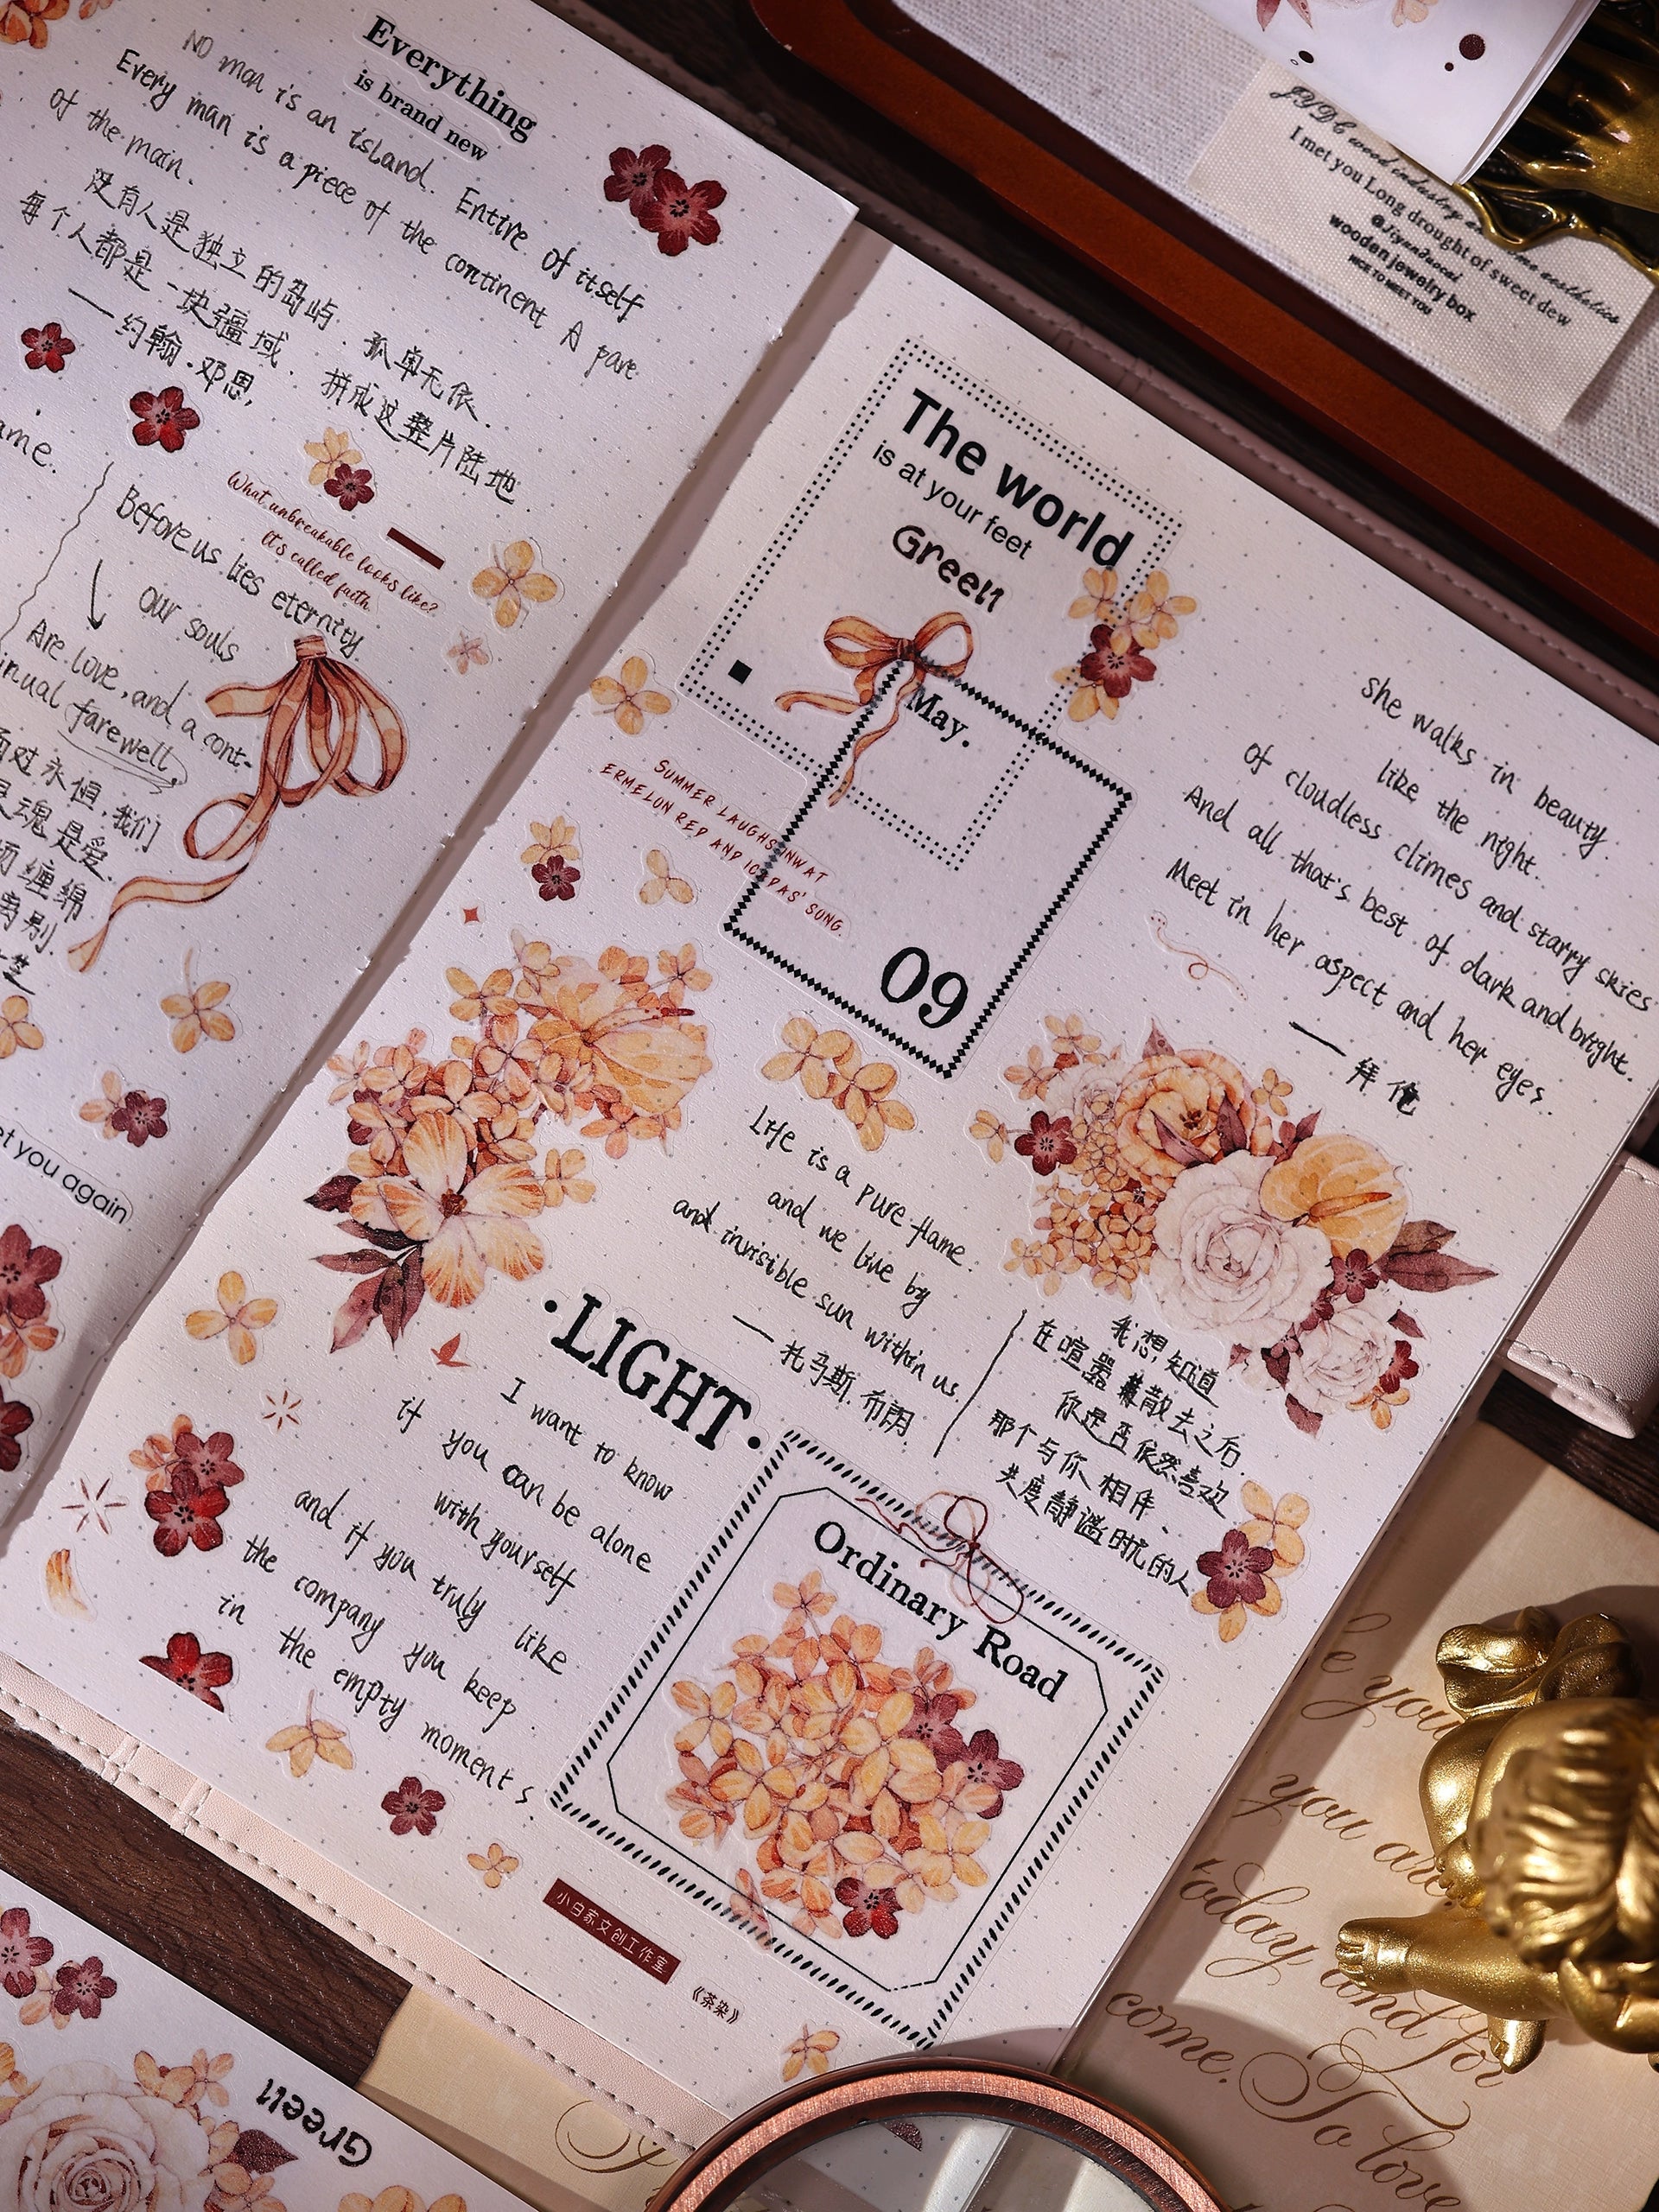 Everything
is brand new
NO man is an island. Entire of itself
Every man is a piece of the continent A pare
of the main.
没有人是独立的岛屿. 孤单无依.
每个人都是一块疆域. 拼成这整片陆地.
——约翰.邓恩,
ame.
What unbreakable looks like?
It's called faith.
Before us lies eternity
our souls
Are love, and a cont-
inual farewell.
面对永恒,我们
灵魂是爱.
缠绵
离别.
et you again
The world
is at your feet
Green
May.
09
SUMMER LAUGHS
ERMELON RED AND
SONG.
she walks in beauty.
like the night.
Of cloudless climes and starry skies
And all that's best of dark and bright.
Meet in her aspect and her eyes.
——拜伦
Life is a pure flame.
and we live by
and invisible sun within us.
——托马斯.布朗.
·LIGHT·
I want to know
if you can be alone
with yourself
and if you truly like
the company you keep.
in the empty moments.
我想,知道
在喧嚣散去之后.
你是否依然喜欢
那个与你相伴、
共度静谧时光的人
Ordinary Road
小白家文创工作室
《茶染》
Green
I met you Long drought of sweet dew
@Jiyandaocai
wooden jewelry box
NICE TO MEET YOU
be you
you are
today and for
come. To love